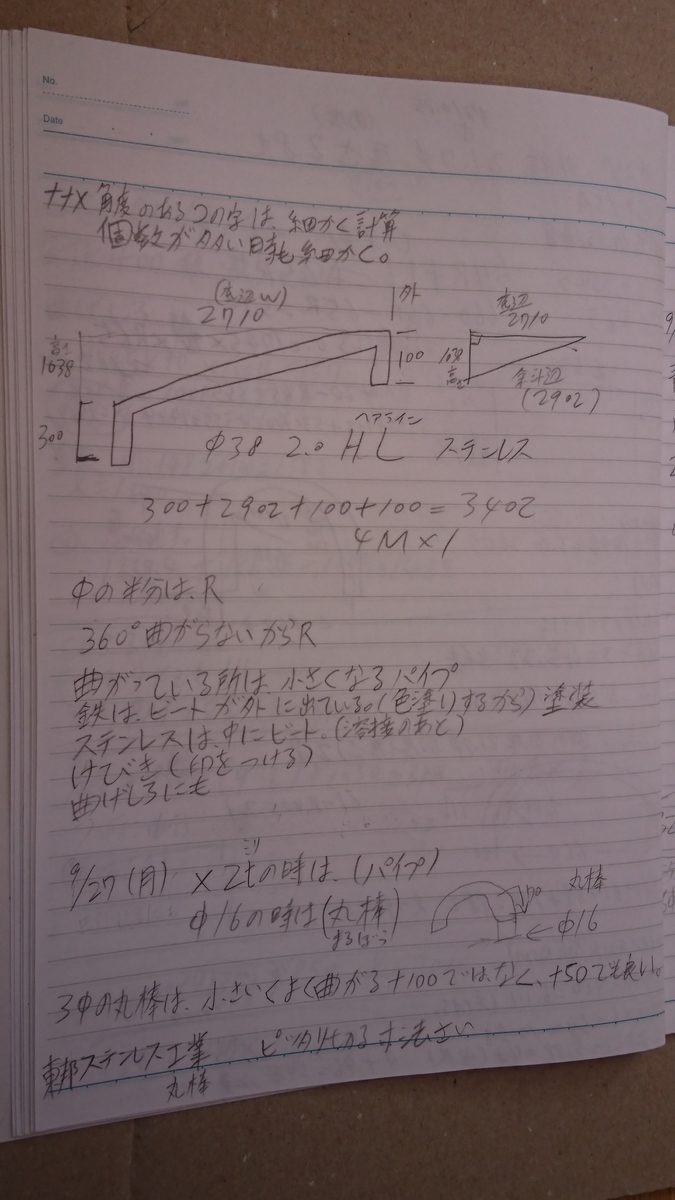 No.
Date
ナナメ 角度のあるコの字は、細かく計算
個数が多い時も細かく。
(底辺W)
2710
外
高さ
1638
100
300
底辺
2710
1638
高さ
斜辺
(2902)
ヘアライン
φ38 2.0 HL ステンレス
300+2902+100+100=3402
4M×1
φの半分は、R
360°曲がらないからR
曲がっている所は、小さくなるパイプ
鉄は、ビートが外に出ている。(色塗りするから)塗装
ステンレスは、中にビート。(溶接のあと)
けびき(印をつける)
曲げしろにも
ミリ
9/27(月) ×2tの時は、(パイプ)
φ16の時は(丸棒)
まるぼう
丸棒
←φ16
3φの丸棒は、小さいくまく曲がる+100ではなく、+50でも良い。
東邦ステンレス工業
丸棒